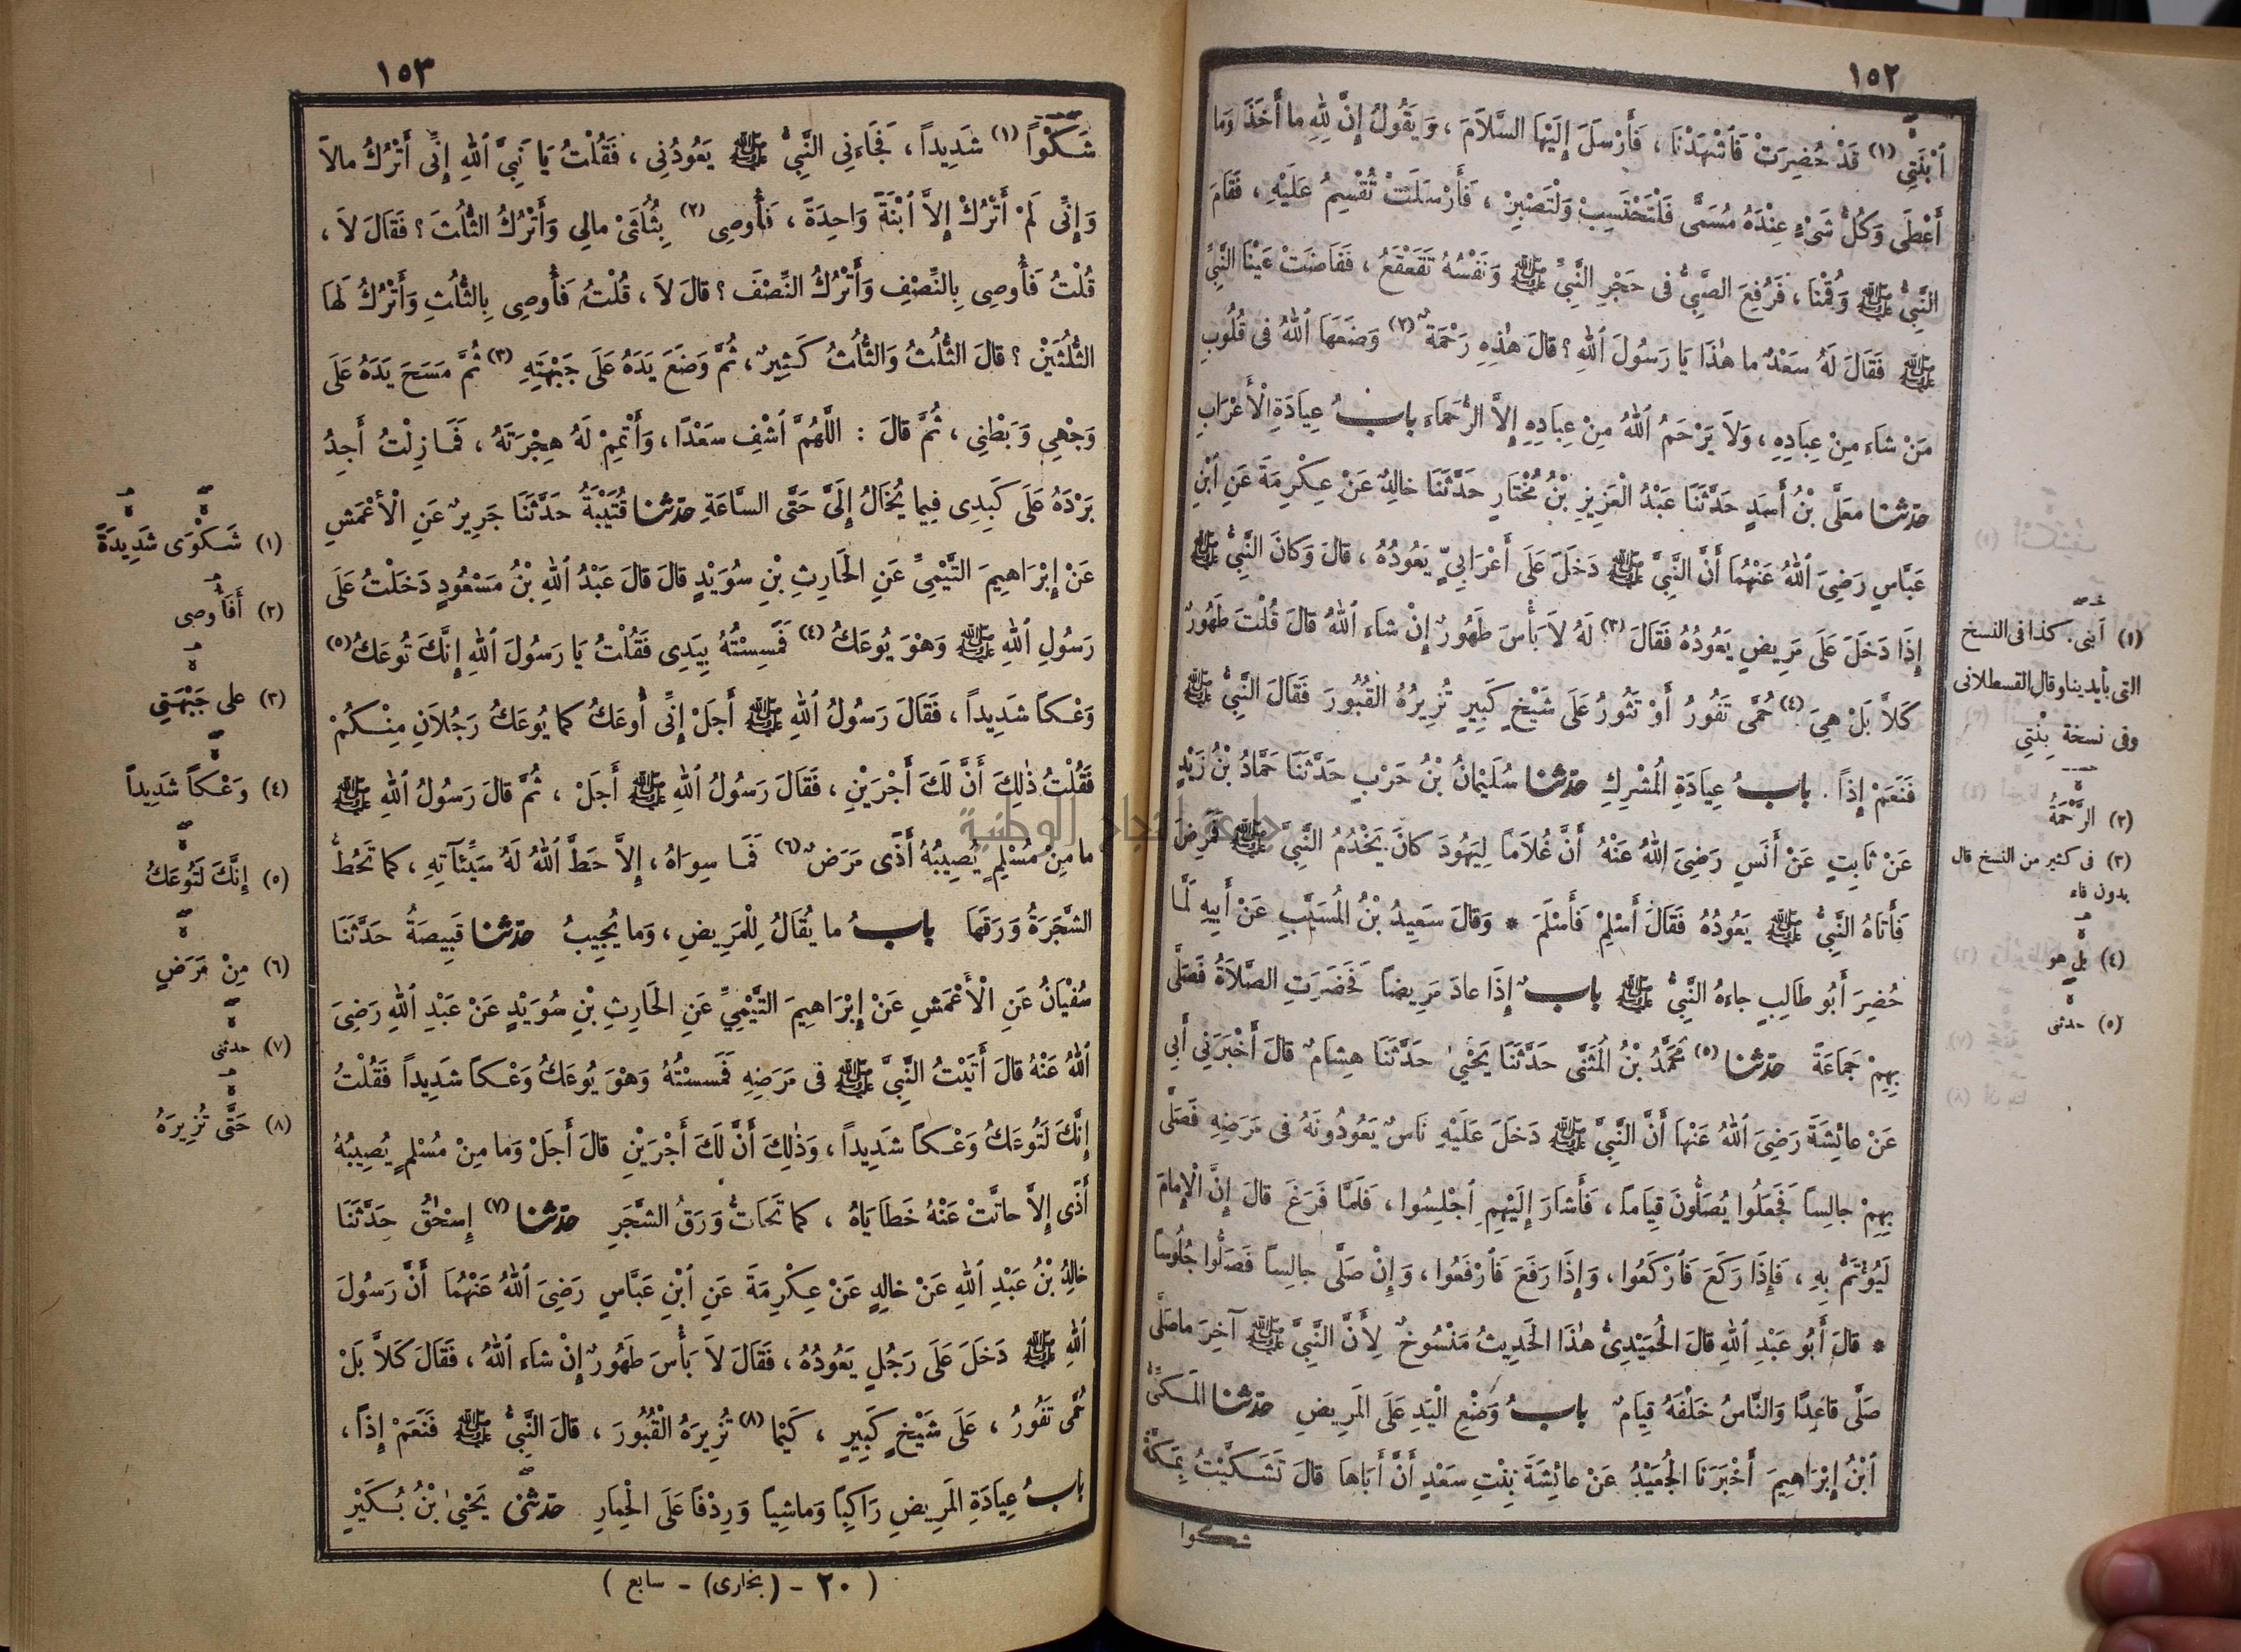 ١٥٢
ٱبْنَتِى (١) قَدْ حُضِرَتْ فَٱشْهَدْنَا ، فَأَرْسَلَ إِلَيْهَا السَّلاَمَ ، وَيَقُولُ إِنَّ لِلّٰهِ ما أَخَذَ وَما
أَعْطَى وَكُلُّ شَىْءٍ عِنْدَهُ مُسَمًّى فَلْتَحْتَسِبْ وَلْتَصْبِرْ ، فَأَرْسَلَتْ تُقْسِمُ عَلَيْهِ ، فَقَامَ
النَّبِىُّ ﷺ وَقُمْنَا ، فَرُفِعَ الصَّبِىُّ فى حَجْرِ النَّبِىِّ ﷺ وَنَفْسُهُ تَقَعْقَعُ ، فَفَاضَتْ عَيْنَا النَّبِىِّ
ﷺ فَقَالَ لَهُ سَعْدٌ ما هٰذَا يَا رَسُولَ ٱللهِ ؟ قالَ هٰذِهِ رَحْمَةٌ (٢) وَضَعَهَا ٱللهُ فى قُلُوبِ
مَنْ شاءَ مِنْ عِبَادِهِ ، وَلاَ يَرْحَمُ ٱللهُ مِنْ عِبَادِهِ إِلاَّ الرُّحَمَاءَ بابُ عِيَادَةِ الْأَعْرَابِ
حدّثنا مُعَلَّى بْنُ أَسَدٍ حَدَّثَنَا عَبْدُ الْعَزِيزِ بْنُ مُخْتَارٍ حَدَّثَنَا خالِدٌ عَنْ عِكْرِمَةَ عَنِ ٱبْنِ
عَبَّاسٍ رَضِىَ ٱللهُ عَنْهُمَا أَنَّ النَّبِىَّ ﷺ دَخَلَ عَلَى أَعْرَابِىٍّ يَعُودُهُ ، قالَ وَكانَ النَّبِىُّ ﷺ
إِذَا دَخَلَ عَلَى مَرِيضٍ يَعُودُهُ فَقَالَ (٣) لَهُ لاَ بَأْسَ طَهُورٌ إِنْ شاءَ ٱللهُ قالَ قُلْتَ طَهُورٌ
كَلاَّ بَلْ هِىَ (٤) حُمَّى تَفُورُ أَوْ تَثُورُ عَلَى شَيْخٍ كَبِيرٍ تُزِيرُهُ الْقُبُورَ فَقَالَ النَّبِىُّ ﷺ
فَنَعَمْ إِذاً . بابُ عِيَادَةِ الْمُشْرِكِ حدّثنا سُلَيْمانُ بْنُ حَرْبٍ حَدَّثَنَا حَمَّادُ بْنُ زَيْدٍ
عَنْ ثَابِتٍ عَنْ أَنَسٍ رَضِىَ اللهُ عَنْهُ أَنَّ غُلاَمًا لِيَهُودَ كانَ يَخْدُمُ النَّبِىَّ ﷺ فَمَرِضَ
فَأَتَاهُ النَّبِىُّ ﷺ يَعُودُهُ فَقَالَ أَسْلِمْ فَأَسْلَمَ * وَقالَ سَعِيدُ بْنُ الْمُسَيَّبِ عَنْ أَبِيهِ لَمَّا
حُضِرَ أَبُو طَالِبٍ جاءَهُ النَّبِىُّ ﷺ بابٌ إِذَا عادَ مَرِيضاً فَحَضَرَتِ الصَّلاَةُ فَصَلَّى
بِهِمْ جَمَاعَةً حدّثنا (٥) مُحَمَّدُ بْنُ الْمُثَنَّى حَدَّثَنَا يَحْيىٰ حَدَّثَنَا هِشَامٌ قالَ أَخْبَرَنِى أَبِى
عَنْ عائِشَةَ رَضِىَ ٱللهُ عَنْهَا أَنَّ النَّبِىَّ ﷺ دَخَلَ عَلَيْهِ نَاسٌ يَعُودُونَهُ فى مَرَضِهِ فَصَلَّى
بِهِمْ جالِسًا فَجَعَلُوا يُصَلُّونَ قِيَاماً ، فَأَشَارَ إِلَيْهِمِ ٱجْلِسُوا ، فَلَمَّا فَرَغَ قالَ إِنَّ الْإِمامَ
لَيُؤْتَمُّ بِهِ ، فَإِذَا رَكَعَ فَٱرْكَعُوا ، وَإِذَا رَفَعَ فَٱرْفَعُوا ، وَإِنْ صَلَّى جالِساً فَصَلُّوا جُلُوساً
* قالَ أَبُو عَبْدِ ٱللهِ قالَ الْحُمَيْدِىُّ هٰذَا الْحَدِيثُ مَنْسُوخٌ لِأَنَّ النَّبِىَّ ﷺ آخِرَ ما صَلَّى
صَلَّى قاعِدًا وَالنَّاسُ خَلْفَهُ قِيَامٌ بابُ وَضْعِ الْيَدِ عَلَى الْمَرِيضِ حدّثنا الْمَكِّىُّ
ٱبْنُ إِبْرَاهِيمَ أَخْبَرَنَا الْجُعَيْدُ عَنْ عائِشَةَ بِنْتِ سَعْدٍ أَنَّ أَبَاهَا قالَ تَشَكَّيْتُ بِمَكَّةَ
شكوا
(١) أَبنى . كذا فى النسخ
التى بأيدينا وقال القسطلانى
وفى نسخة بِنْتِى
(٢) الرَّحْمَةُ
(٣) فى كثير من النسخ قال
بدون فاء
(٤) بل هو
(٥) حدثنى
١٥٣
شَكْوًا (١) شَدِيداً ، فَجَاءَنِى النَّبِىُّ ﷺ يَعُودُنِى ، فَقُلْتُ يَا نَبِىَّ ٱللهِ إِنِّى أَتْرُكُ مالاً
وَإِنِّى لَمْ أَتْرُكْ إِلاَّ ٱبْنَةً وَاحِدَةً ، فَأُوصِى (٢) بِثُلُثَىْ مالِى وَأَتْرُكُ الثُّلُثَ ؟ فَقَالَ لاَ ،
قُلْتُ فَأُوصِى بِالنِّصْفِ وَأَتْرُكُ النِّصْفَ ؟ قالَ لاَ ، قُلْتُ فَأُوصِى بِالثُّلُثِ وَأَتْرُكُ لَهَا
الثُّلُثَيْنِ ؟ قالَ الثُّلُثُ وَالثُّلُثُ كَثِيرٌ ، ثُمَّ وَضَعَ يَدَهُ عَلَى جَبْهَتِهِ (٣) ثُمَّ مَسَحَ يَدَهُ عَلَى
وَجْهِى وَبَطْنِى ، ثُمَّ قالَ : اللَّهُمَّ ٱشْفِ سَعْدًا ، وَأَتْمِمْ لَهُ هِجْرَتَهُ ، فَمَا زِلْتُ أَجِدُ
بَرْدَهُ عَلَى كَبِدِى فِيما يُخَالُ إِلَىَّ حَتَّى السَّاعَةِ حدّثنا قُتَيْبَةُ حَدَّثَنَا جَرِيرٌ عَنِ الْأَعْمَشِ
عَنْ إِبْرَاهِيمَ التَّيْمِىِّ عَنِ الْحَارِثِ بْنِ سُوَيْدٍ قالَ قالَ عَبْدُ ٱللهِ بْنُ مَسْعُودٍ دَخَلْتُ عَلَى
رَسُولِ ٱللهِ ﷺ وَهْوَ يُوعَكُ (٤) فَمَسِسْتُهُ بِيَدِى فَقُلْتُ يَا رَسُولَ ٱللهِ إِنَّكَ تُوعَكُ (٥)
وَعْكاً شَدِيداً ، فَقَالَ رَسُولُ ٱللهِ ﷺ أَجَلْ إِنِّى أُوعَكُ كما يُوعَكُ رَجُلاَنِ مِنْكُمْ
فَقُلْتُ ذٰلِكَ أَنَّ لَكَ أَجْرَيْنِ ، فَقَالَ رَسُولُ ٱللهِ ﷺ أَجَلْ ، ثُمَّ قالَ رَسُولُ ٱللهِ ﷺ
ما مِنْ مُسْلِمٍ يُصِيبُهُ أَذًى مَرَضٌ (٦) فَمَا سِوَاهُ ، إِلاَّ حَطَّ ٱللهُ لَهُ سَيِّئآتِهِ ، كما تَحُطُّ
الشَّجَرَةُ وَرَقَهَا بابُ ما يُقَالُ لِلْمَرِيضِ ، وَما يُجِيبُ حدّثنا قَبِيصَةُ حَدَّثَنَا
سُفْيَانُ عَنِ الْأَعْمَشِ عَنْ إِبْرَاهِيمَ التَّيْمِىِّ عَنِ الْحَارِثِ بْنِ سُوَيْدٍ عَنْ عَبْدِ ٱللهِ رَضِىَ
ٱللهُ عَنْهُ قالَ أَتَيْتُ النَّبِىَّ ﷺ فى مَرَضِهِ فَمَسِسْتُهُ وَهْوَ يُوعَكُ وَعْكاً شَدِيداً فَقُلْتُ
إِنَّكَ لَتُوعَكُ وَعْكاً شَدِيداً ، وَذٰلِكَ أَنَّ لَكَ أَجْرَيْنِ قالَ أَجَلْ وَما مِنْ مُسْلِمٍ يُصِيبُهُ
أَذًى إِلاَّ حاتَّتْ عَنْهُ خَطَايَاهُ ، كما تَحَاتُّ وَرَقُ الشَّجَرِ حدّثنا (٧) إِسْحٰقُ حَدَّثَنَا
خالِدُ بْنُ عَبْدِ ٱللهِ عَنْ خالِدٍ عَنْ عِكْرِمَةَ عَنِ ٱبْنِ عَبَّاسٍ رَضِىَ ٱللهُ عَنْهُمَا أَنَّ رَسُولَ
ٱللهِ ﷺ دَخَلَ عَلَى رَجُلٍ يَعُودُهُ ، فَقَالَ لاَ بَأْسَ طَهُورٌ إِنْ شاءَ ٱللهُ ، فَقَالَ كَلاَّ بَلْ
حُمَّى تَفُورُ ، عَلَى شَيْخٍ كَبِيرٍ ، كَيْما (٨) تُزِيرَهُ الْقُبُورَ ، قالَ النَّبِىُّ ﷺ فَنَعَمْ إِذاً ،
بابُ عِيَادَةِ الْمَرِيضِ رَاكِبًا وَماشِياً وَرِدْفًا عَلَى الْحِمَارِ حدّثنى يَحْيىٰ بْنُ بُكَيْرٍ
(١) شَكْوَى شَدِيدَةً
(٢) أَفَأُوصى
(٣) على جَبْهَتِى
(٤) وَعْكاً شَدِيداً
(٥) إِنَّكَ لَتُوعَكُ
(٦) مِنْ مَرَضٍ
(٧) حدثنى
(٨) حَتَّى تُزِيرَهُ
( ٢٠ - (بخارى) - سابع )
جامعة النجاح الوطنية